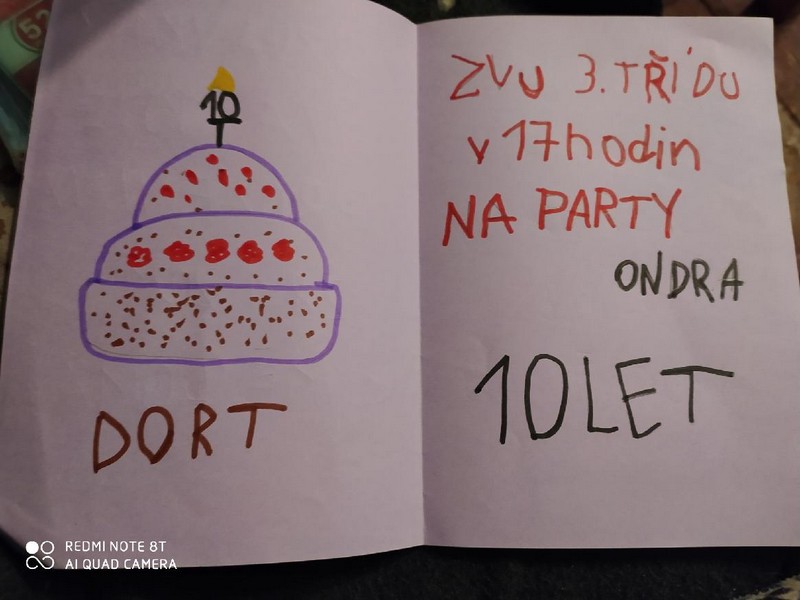 10
DORT
ZVU 3. TŘÍDU
v 17 hodin
NA PARTY
ONDRA
10 LET
REDMI NOTE 8T
AI QUAD CAMERA
52